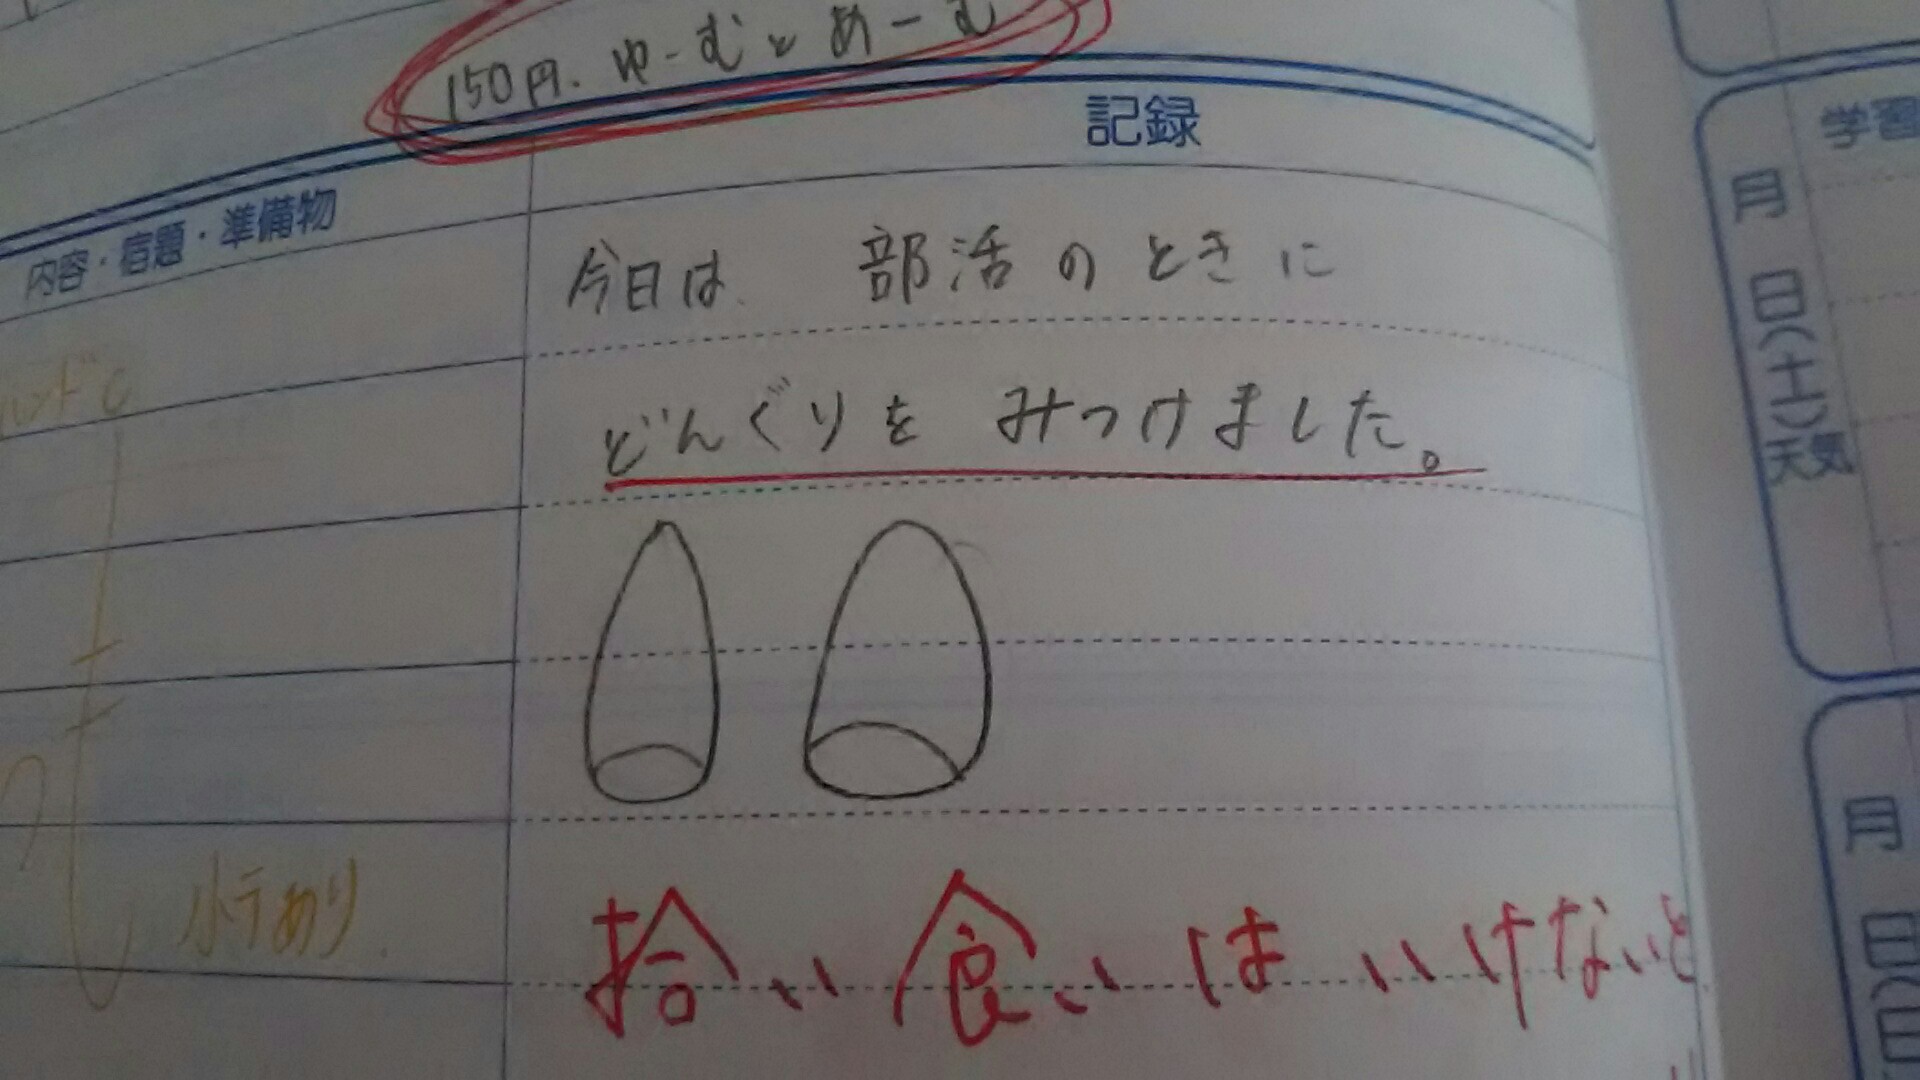 150円. ゆーむとあーむ
記録
内容・宿題・準備物
今日は 部活のときに
どんぐりを みつけました。
小テあり
拾い食いはいけないと
学習
月 日(土) 天気
月 日(日)